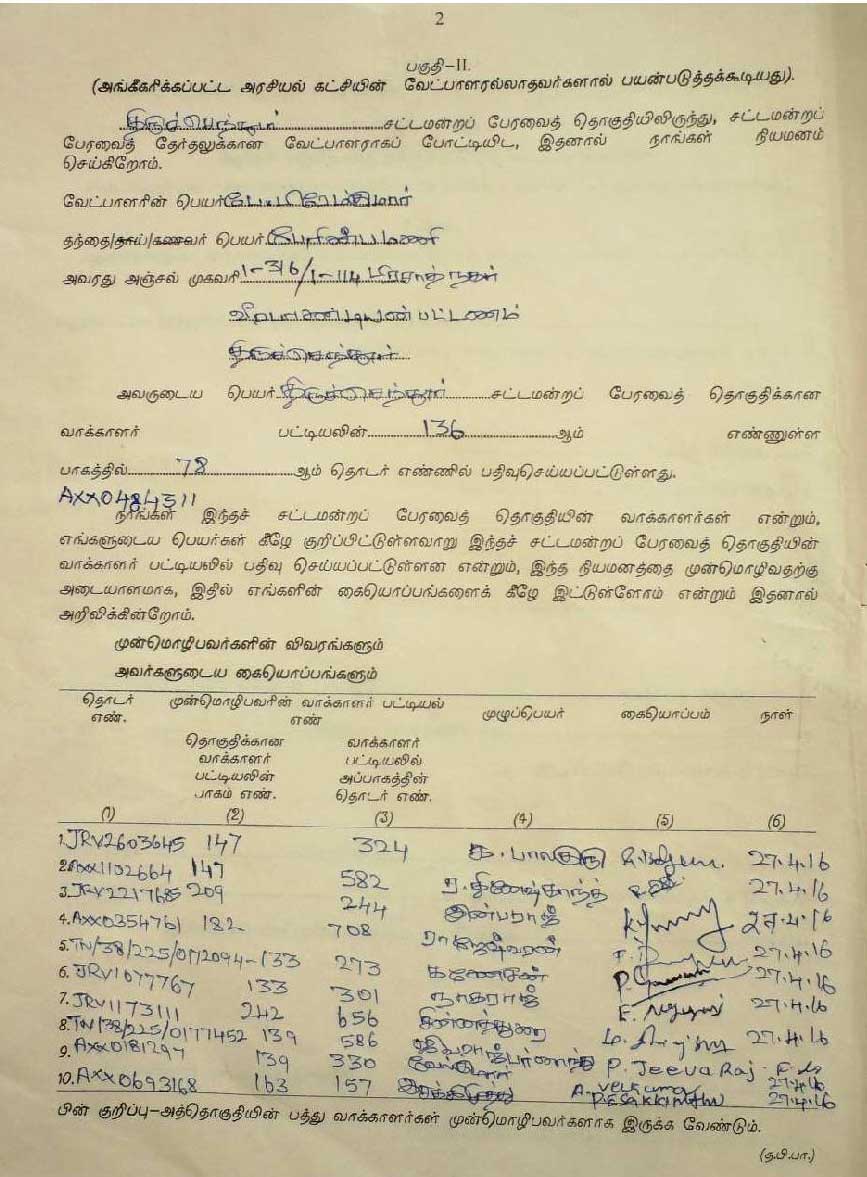 2
பகுதி–II.
(அங்கீகரிக்கப்பட்ட அரசியல் கட்சியின் வேட்பாளரல்லாதவர்களால் பயன்படுத்தக்கூடியது).
திருச்செந்தூர் சட்டமன்றப் பேரவைத் தொகுதியிலிருந்து, சட்டமன்றப்
பேரவைத் தேர்தலுக்கான வேட்பாளராகப் போட்டியிட, இதனால் நாங்கள் நியமனம்
செய்கிறோம்.
வேட்பாளரின் பெயர்
தந்தை/தாய்/கணவர் பெயர்
அவரது அஞ்சல் முகவரி 1-316/1-114 பிரசாத் நகர்
வீரபாண்டியன் பட்டணம்
திருச்செந்தூர்
அவருடைய பெயர் திருச்செந்தூர் சட்டமன்றப் பேரவைத் தொகுதிக்கான
வாக்காளர் பட்டியலின் 136 ஆம் எண்ணுள்ள
பாகத்தில் 78 ஆம் தொடர் எண்ணில் பதிவுசெய்யப்பட்டுள்ளது.
AXX0484311
நாங்கள் இந்தச் சட்டமன்றப் பேரவைத் தொகுதியின் வாக்காளர்கள் என்றும்,
எங்களுடைய பெயர்கள் கீழே குறிப்பிட்டுள்ளவாறு இந்தச் சட்டமன்றப் பேரவைத் தொகுதியின்
வாக்காளர் பட்டியலில் பதிவு செய்யப்பட்டுள்ளன என்றும், இந்த நியமனத்தை முன்மொழிவதற்கு
அடையாளமாக, இதில் எங்களின் கையொப்பங்களைக் கீழே இட்டுள்ளோம் என்றும் இதனால்
அறிவிக்கின்றோம்.
முன்மொழிபவர்களின் விவரங்களும்
அவர்களுடைய கையொப்பங்களும்
தொடர் எண். முன்மொழிபவரின் வாக்காளர் பட்டியல் எண் முழுப்பெயர் கையொப்பம் நாள்
தொகுதிக்கான வாக்காளர் பட்டியலின் பாகம் எண். வாக்காளர் பட்டியலில் அப்பாகத்தின் தொடர் எண்.
(1) (2) (3) (4) (5) (6)
1. JRV2603645 147 324 க. பாலகுரு 27.4.16
2. AXX1102664 147 582 ர. தினேஷ்காந்த் 27.4.16
3. JRV2217685 209 244 இன்பராஜ் 27.4.16
4. AXX0354761 182 708 ராஜேஷ்வரன் 27.4.16
5. TN/38/225/0172094-133 273 கணேசன் 27.4.16
6. JRV1077767 133 301 நாகராஜ் 27.4.16
7. JRV1173111 242 656 சின்னத்துரை 27.4.16
8. TN/38/225/0177452 139 586 P. Jeeva Raj
9. AXX0181297 139 330 A. Velkumar 27.4.16
10. AXX0693168 163 157 27.4.16
பின் குறிப்பு–அத்தொகுதியின் பத்து வாக்காளர்கள் முன்மொழிபவர்களாக இருக்க வேண்டும்.
(த.பி.பா.)